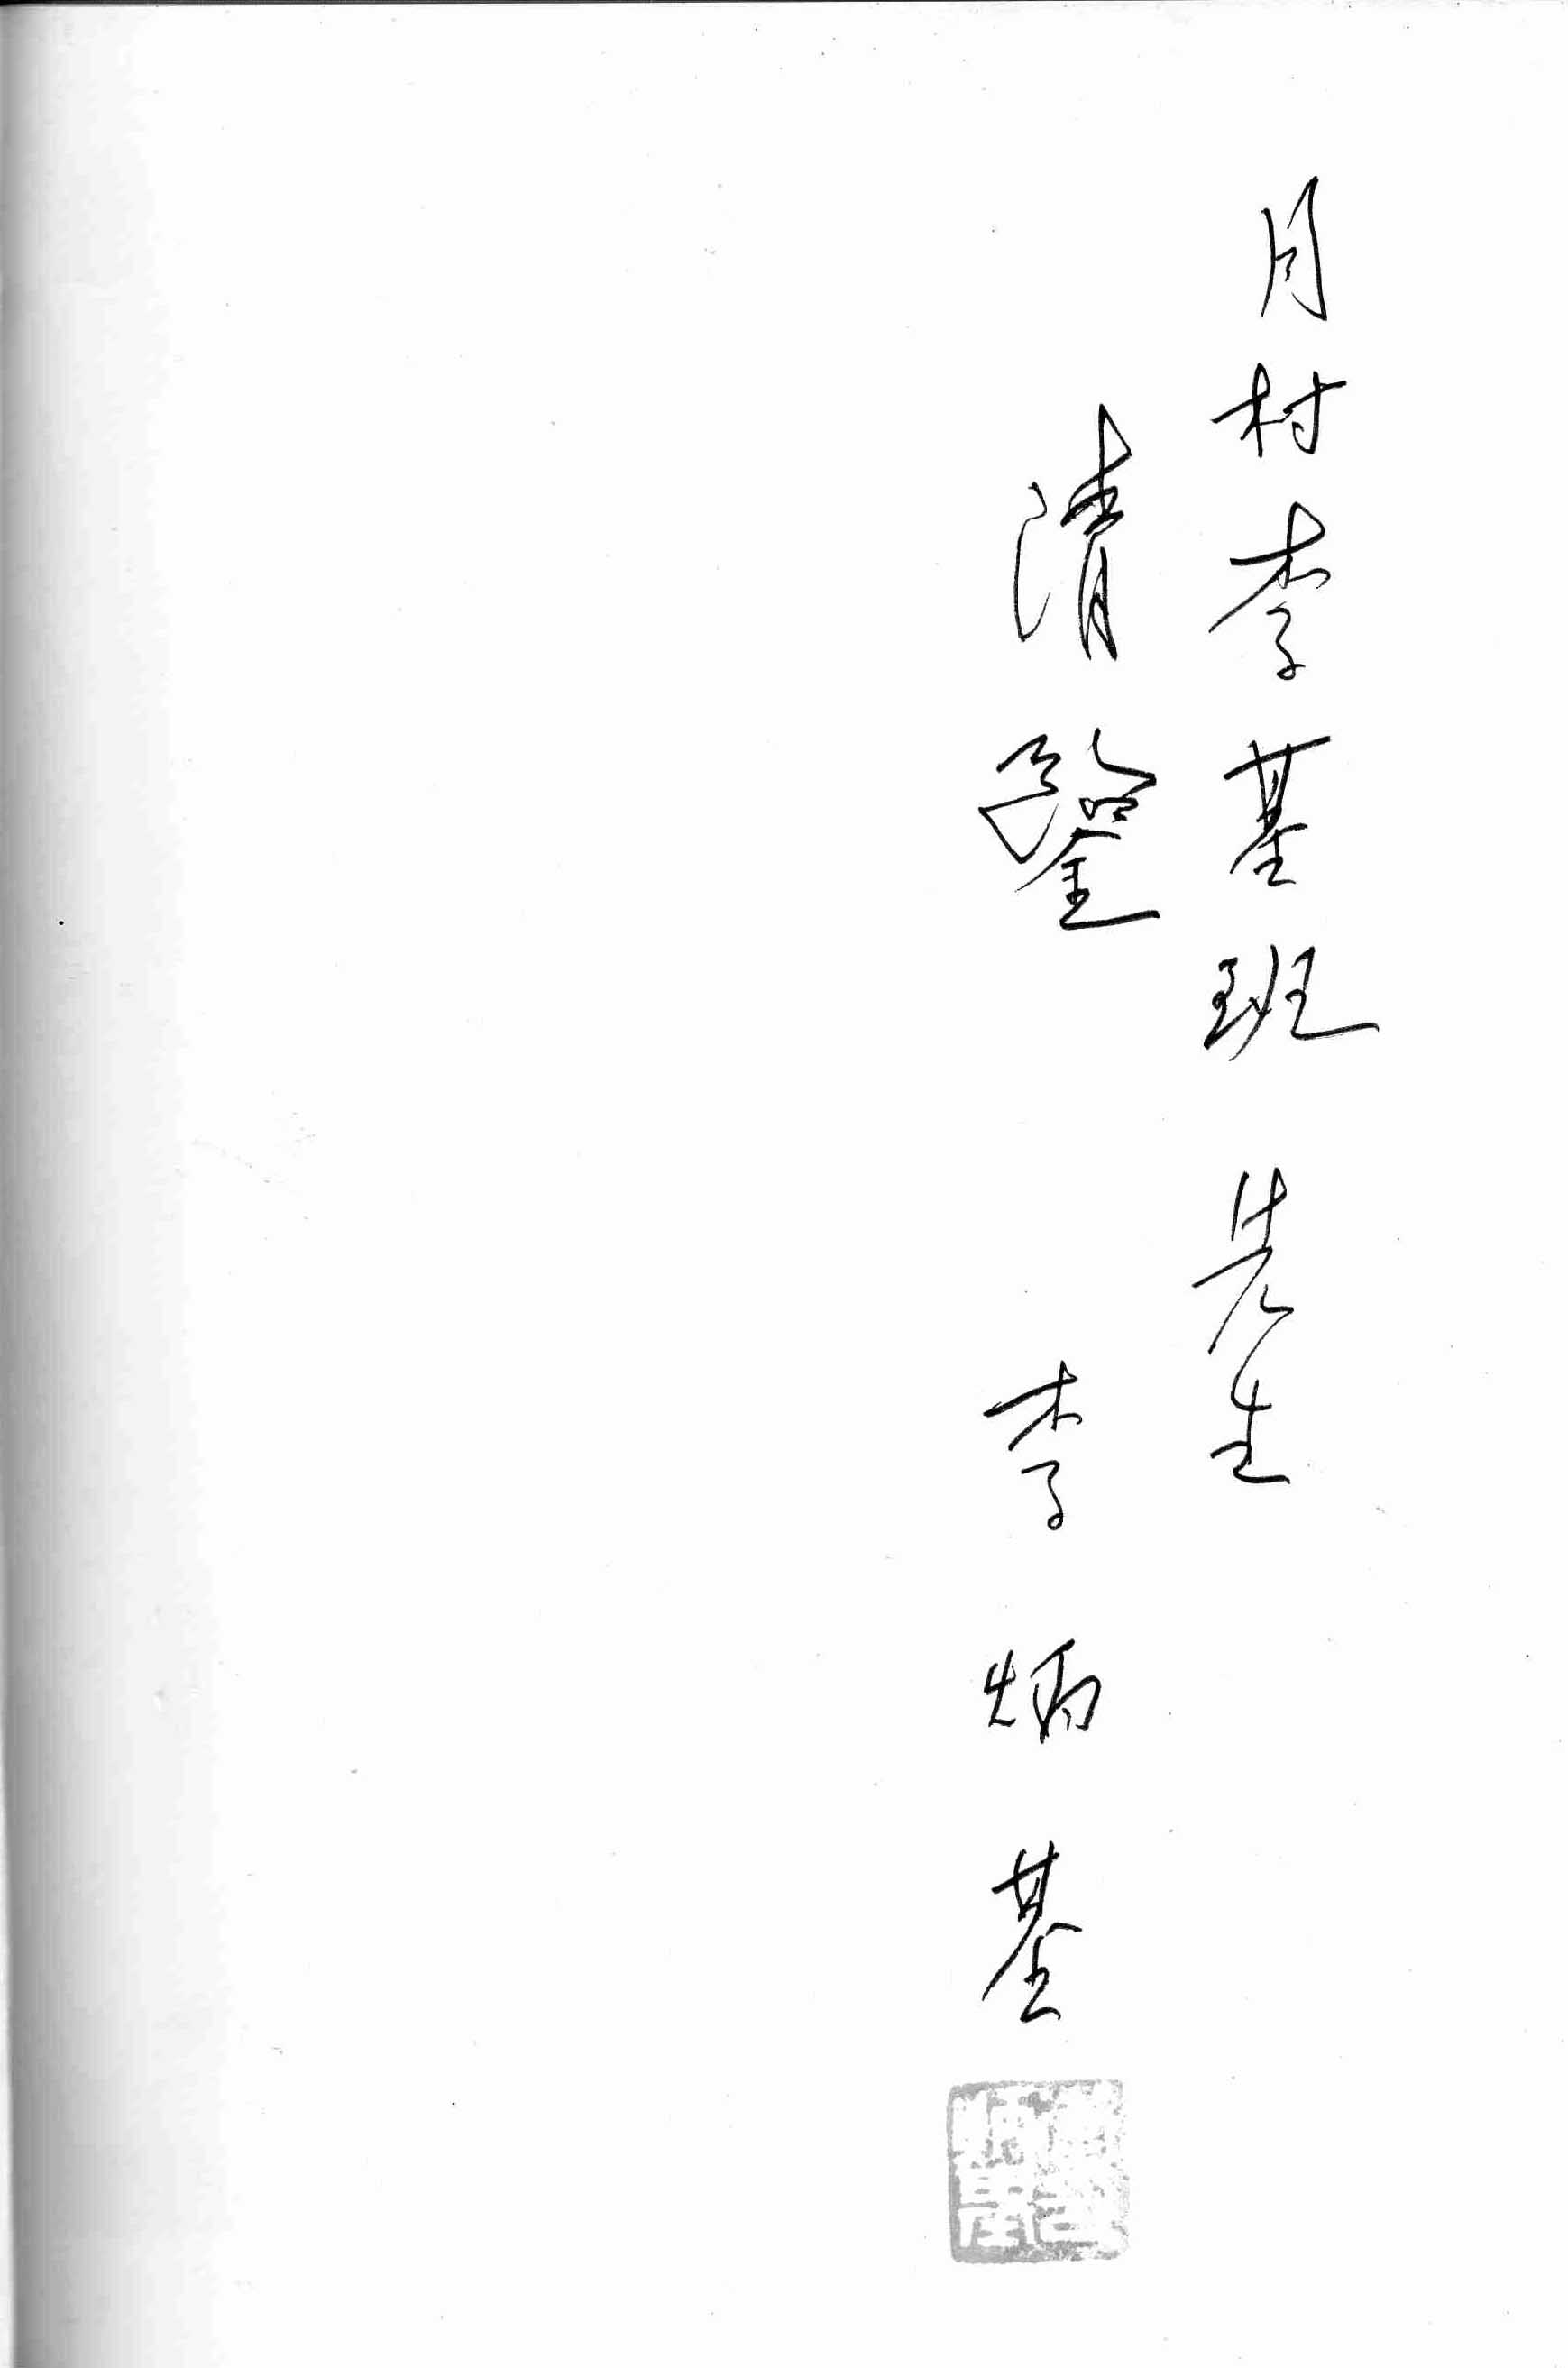 月村李基班 先生
清鑒 李炳基